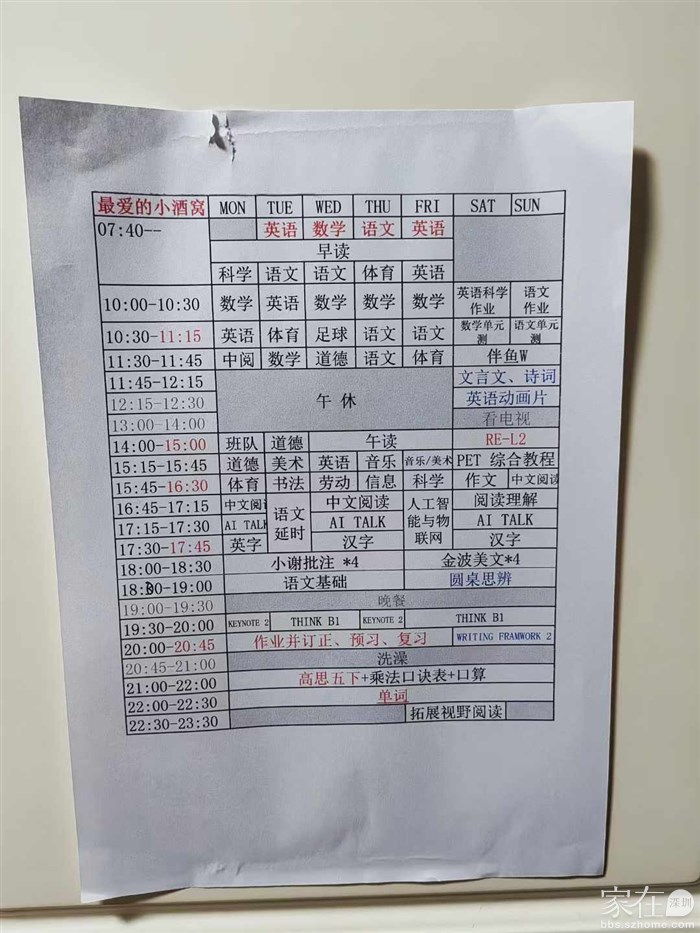 最爱的小酒窝 MON TUE WED THU FRI SAT SUN
07:40-- 英语 数学 语文 英语
早读
科学 语文 语文 体育 英语
10:00-10:30 数学 英语 数学 数学 数学 英语科学作业 语文作业
10:30-11:15 英语 体育 足球 语文 语文 数学单元测 语文单元测
11:30-11:45 中阅 数学 道德 语文 体育 伴鱼W
11:45-12:15 午休 文言文、诗词
12:15-12:30 英语动画片
13:00-14:00 看电视
14:00-15:00 班队 道德 午读 RE-L2
15:15-15:45 道德 美术 英语 音乐 音乐/美术 PET 综合教程
15:45-16:30 体育 书法 劳动 信息 科学 作文 中文阅读
16:45-17:15 中文阅读 语文延时 中文阅读 人工智能与物联网 阅读理解
17:15-17:30 AI TALK AI TALK AI TALK
17:30-17:45 英字 汉字 汉字
18:00-18:30 小谢批注 *4 金波美文*4
18:30-19:00 语文基础 圆桌思辨
19:00-19:30 晚餐
19:30-20:00 KEYNOTE 2 THINK B1 KEYNOTE 2 THINK B1
20:00-20:45 作业并订正、预习、复习 WRITING FRAMWORK 2
20:45-21:00 洗澡
21:00-22:00 高思五下+乘法口诀表+口算
22:00-22:30 单词
22:30-23:30 拓展视野阅读
家在深圳
bbs.szhome.com